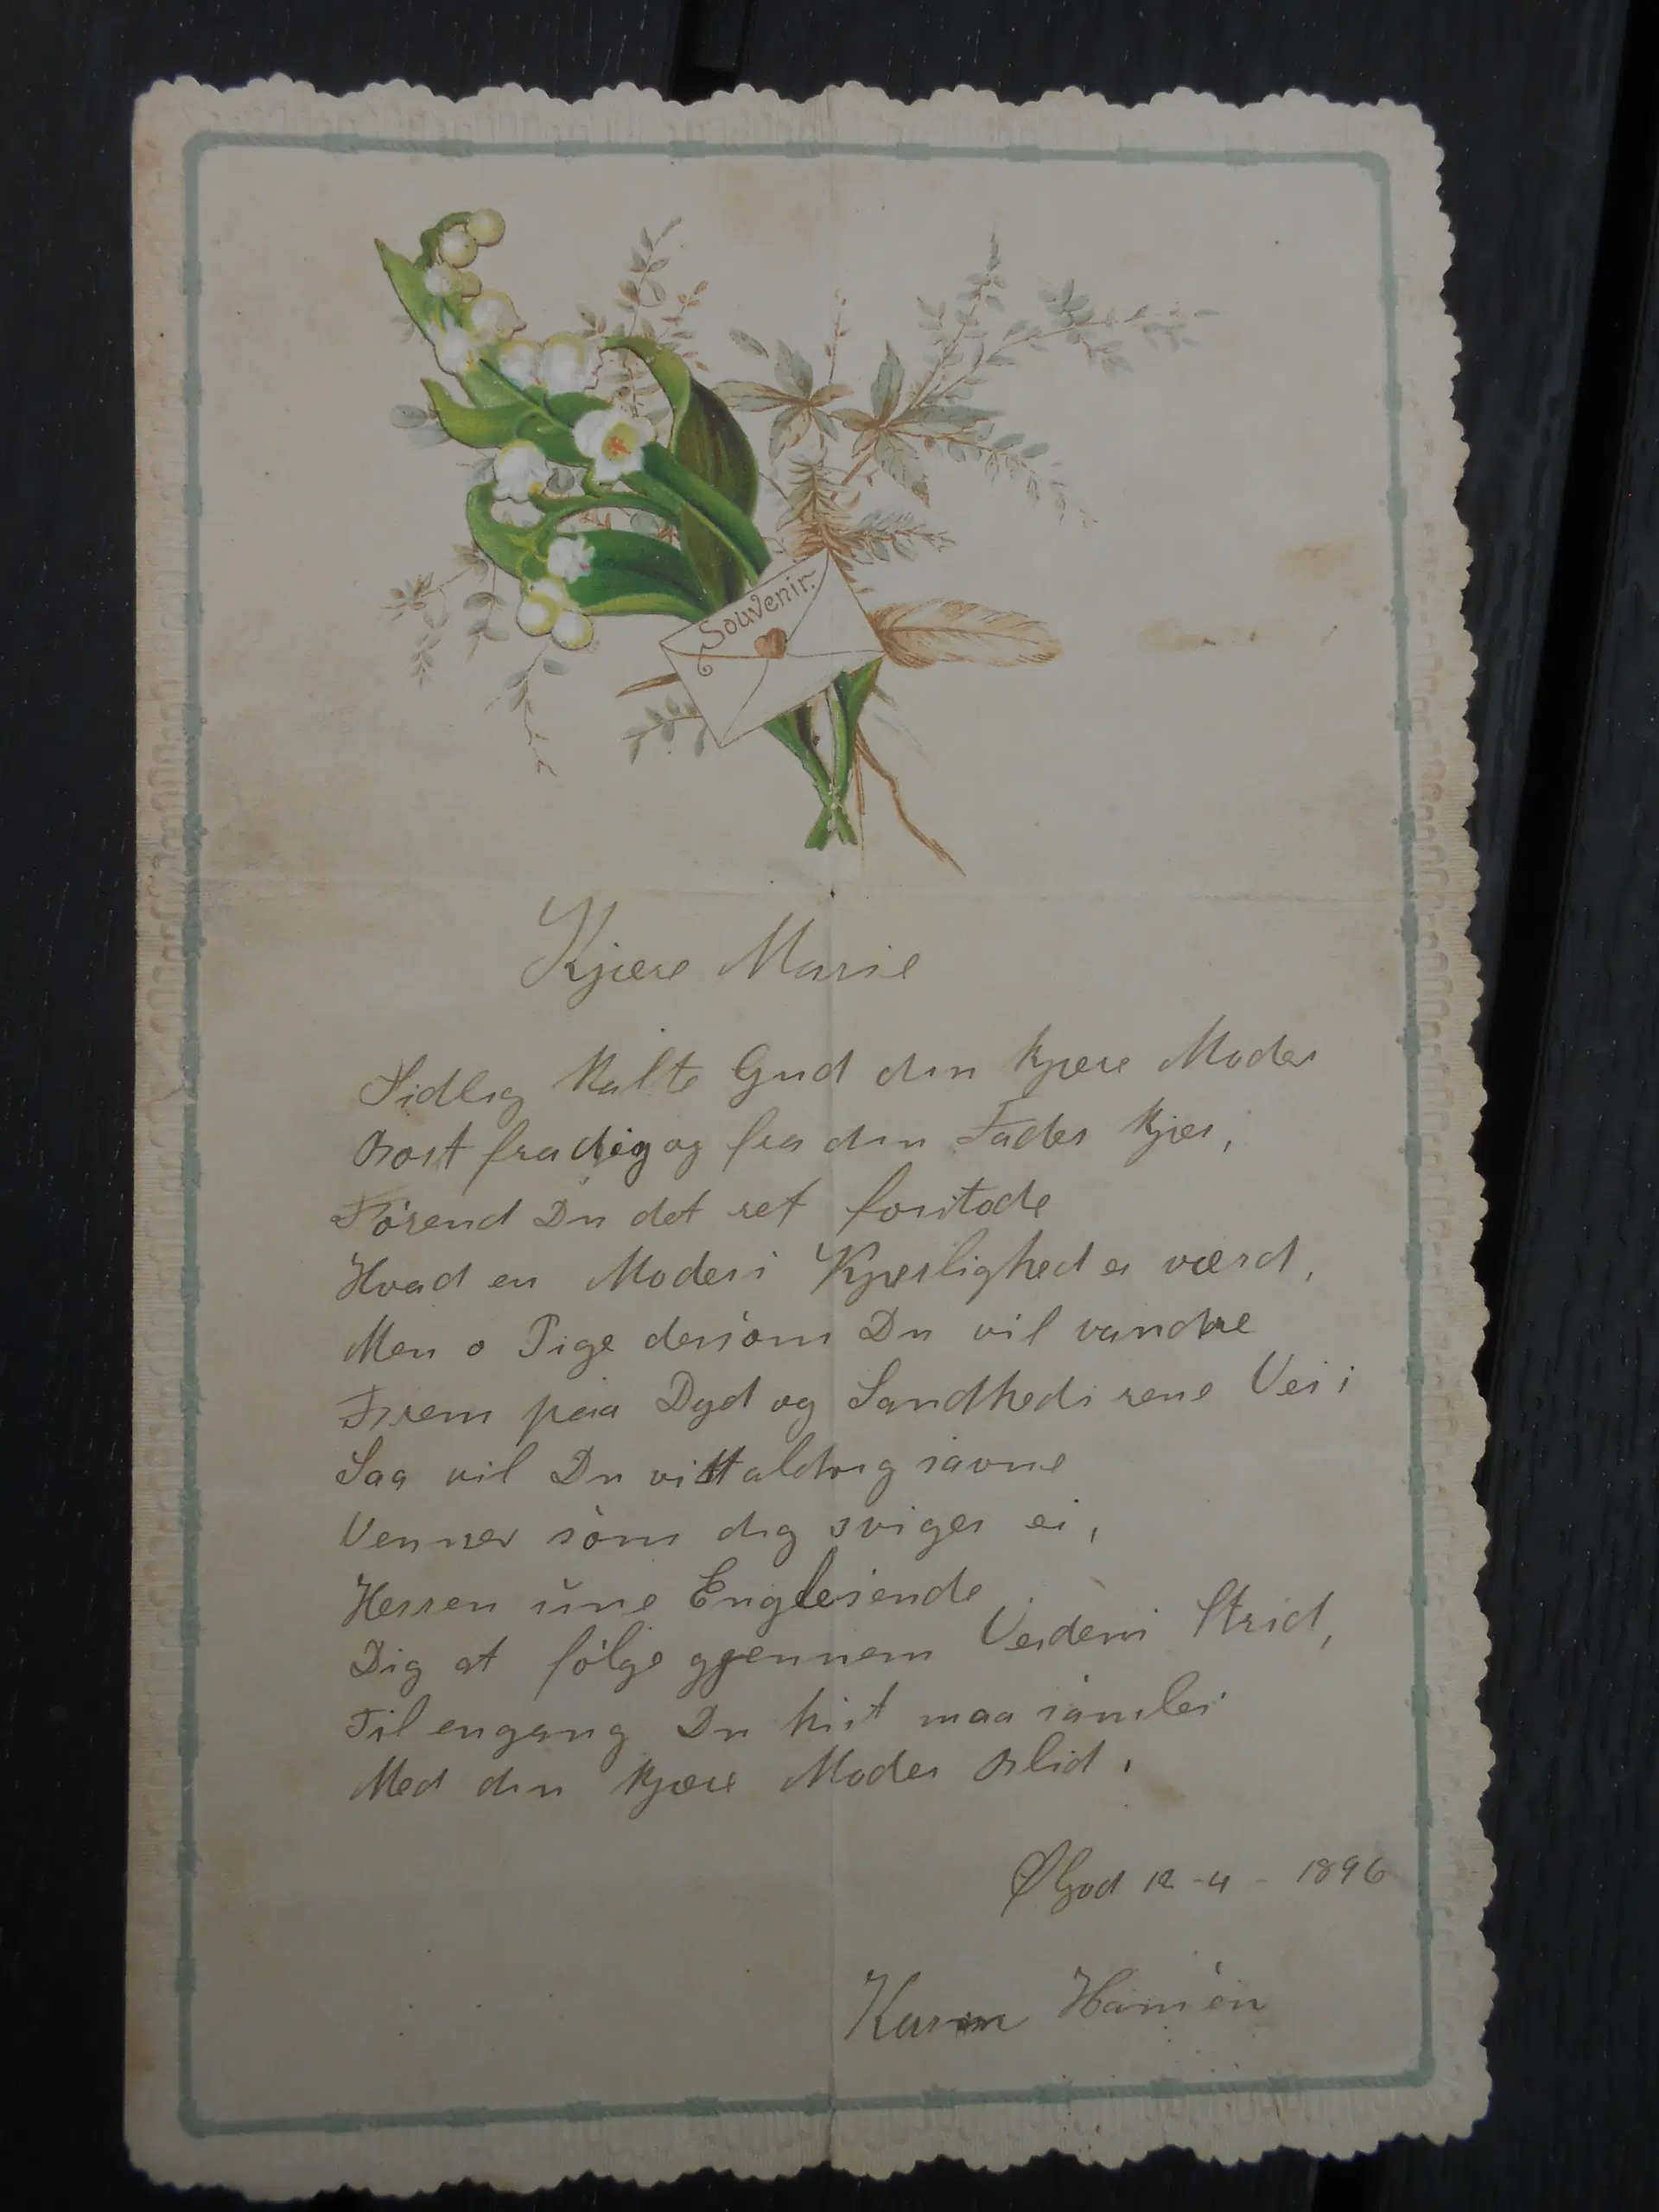 Souvenir.
Kjære Marie
Tidlig kalte Gud din kjære Moder
Bort fra dig og fra din Fader kjær,
Förend Du det ret forstode
Hvad en Moders Kjærlighed er værd,
Men o Pige dersom Du vil vandre
Frem paa Dyd og Sandheds rene Vei;
Saa vil Du vist aldrig savne
Venner som dig sviger ei,
Herren sine Engle sende
Dig at fölge gjennem Verdens Strid,
Til engang Du hist maa samles
Med din kjære Moder blid.
Ølgod 12-4-1896
Karen Hansen